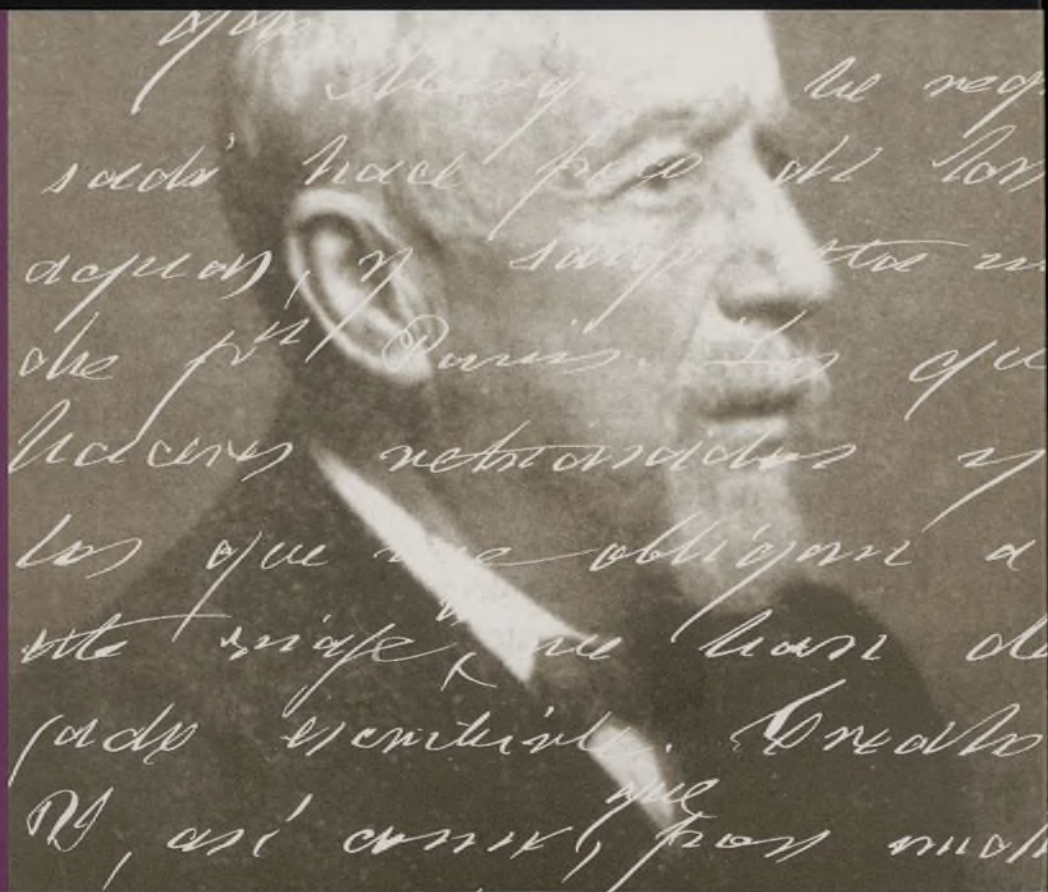 he reg
sado hace poco de los
aguas, y
de pª Paris. Los que
haceres retrasados y
los que me obligan a
este viaje, no han de
jado escribirle. Créalo
V, así como, que por